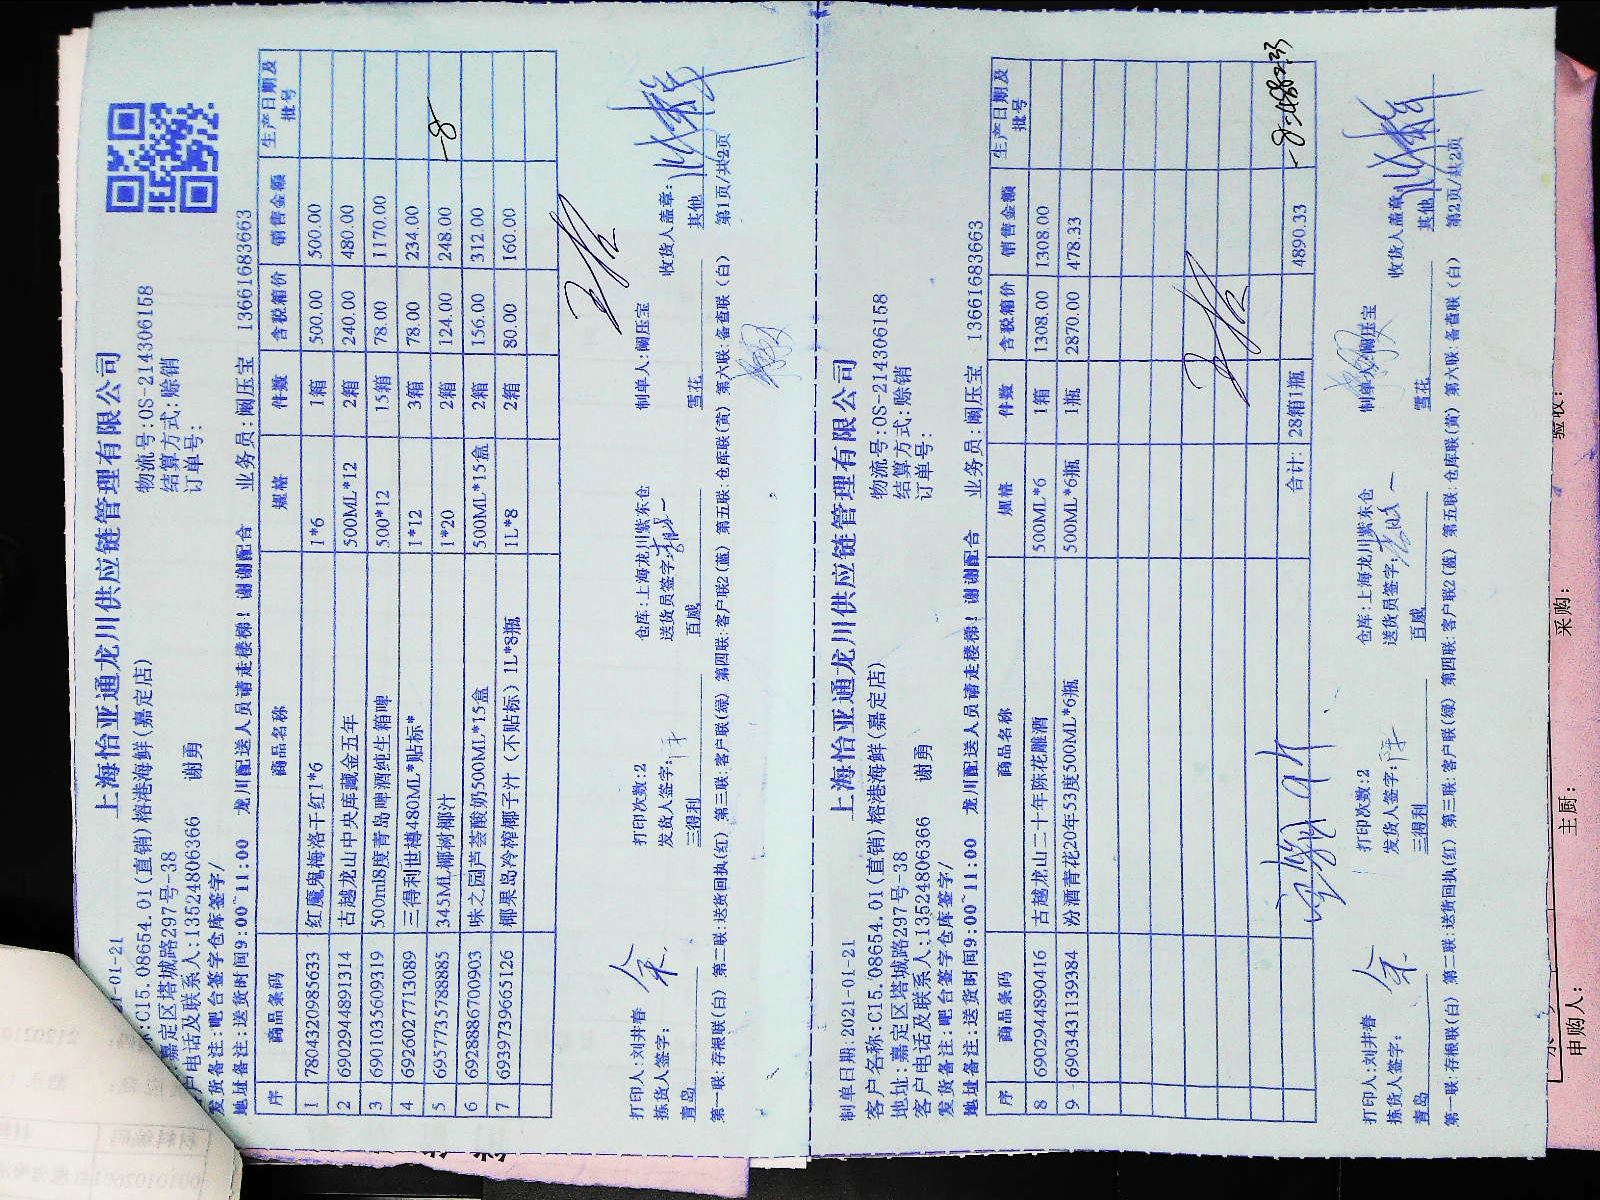 上海怡亚通龙川供应链管理有限公司
物流号:OS-214306158
结算方式:赊销
订单号:
C15.08654.01(直销)榕港海鲜(嘉定店)
嘉定区塔城路297号-38
户电话及联系人:13524806366 谢勇
发货备注:吧台签字仓库签字/
地址备注:送货时间9:00~11:00 龙川配送人员请走楼梯!谢谢配合 业务员:阚压宝 13661683663
序 商品条码 商品名称 规格 件数 含税箱价 销售金额 生产日期及批号
1 7804320985633 红魔鬼梅洛干红1*6 1*6 1箱 500.00 500.00
2 6902944891314 古越龙山中央库藏金五年 500ML*12 2箱 240.00 480.00
3 6901035609319 500ml8度青岛啤酒纯生箱啤 500*12 15箱 78.00 1170.00
4 6926027713089 三得利世樽480ML*贴标* 1*12 3箱 78.00 234.00
5 6957735788885 345ML椰树椰汁 1*20 2箱 124.00 248.00 -8
6 6928886700903 味之园芦荟酸奶500ML*15盒 500ML*15盒 2箱 156.00 312.00
7 6939739665126 椰果岛冷榨椰子汁(不贴标)1L*8瓶 1L*8 2箱 80.00 160.00
打印人:刘井春 打印次数:2 仓库:上海龙川紫东仓 制单人:阚压宝
拣货人签字: 余 发货人签字: 送货员签字: 收货人盖章:
青岛 三得利 百威 雪花 其他
第一联:存根联(白) 第二联:送货回执(红) 第三联:客户联(绿) 第四联:客户联2(蓝) 第五联:仓库联(黄) 第六联:备查联(白) 第1页/共2页
上海怡亚通龙川供应链管理有限公司
制单日期:2021-01-21 物流号:OS-214306158
客户名称:C15.08654.01(直销)榕港海鲜(嘉定店) 结算方式:赊销
地址:嘉定区塔城路297号-38 订单号:
客户电话及联系人:13524806366 谢勇
发货备注:吧台签字仓库签字/
地址备注:送货时间9:00~11:00 龙川配送人员请走楼梯!谢谢配合 业务员:阚压宝 13661683663
序 商品条码 商品名称 规格 件数 含税箱价 销售金额 生产日期及批号
8 6902944890416 古越龙山二十年陈花雕酒 500ML*6 1箱 1308.00 1308.00
9 6903431139384 汾酒青花20年53度500ML*6瓶 500ML*6瓶 1瓶 2870.00 478.33
合计: 28箱1瓶 4890.33
打印人:刘井春 打印次数:2 仓库:上海龙川紫东仓 制单人:阚压宝
拣货人签字: 余 发货人签字: 送货员签字: 收货人盖章:
青岛 三得利 百威 雪花 其他
第一联:存根联(白) 第二联:送货回执(红) 第三联:客户联(绿) 第四联:客户联2(蓝) 第五联:仓库联(黄) 第六联:备查联(白) 第2页/共2页
申购人: 主厨: 采购: 验收: